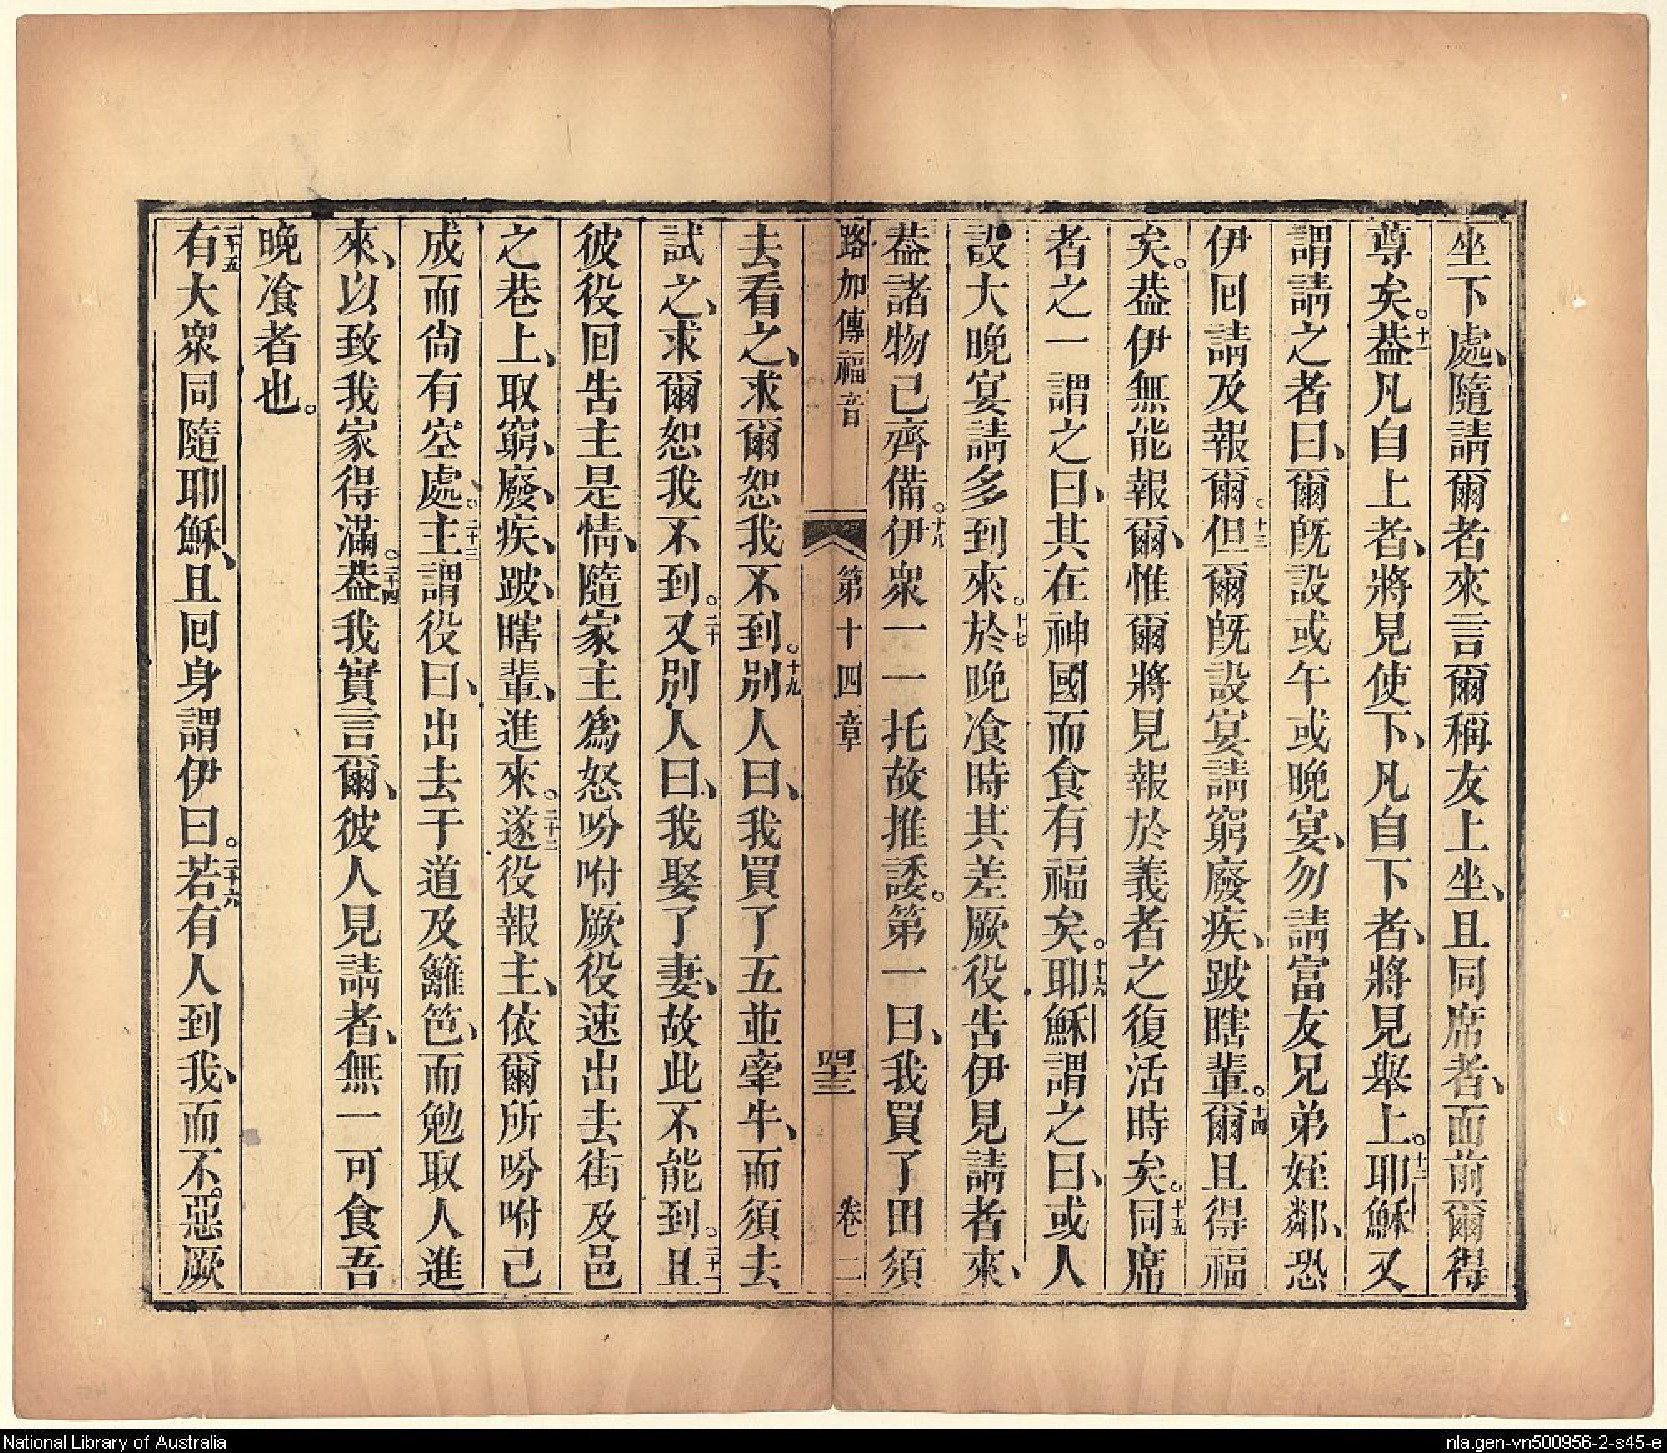 坐下處、隨請爾者來言爾稱友上坐、且同席者、面前爾得
尊矣。十一葢凡自上者、將見使下、凡自下者、將見舉上。十二耶穌又
謂請之者曰、爾旣設或午或晚宴、勿請富友兄弟姪鄰、恐
伊囘請及報爾。十三但爾旣設宴請窮廢疾、跛瞎輩。十四爾且得福
矣。葢伊無能報爾、惟爾將見報於義者之復活時矣。十五同席
者之一謂之曰、其在神國而食有福矣。十六耶穌謂之曰、或人
設大晚宴請多到來。十七於晚飡時其差厥役告伊見請者來、
葢諸物已齊備。十八伊衆一一托故推諉。第一曰、我買了田須
路加傳福音 第十四章 四十三 卷二
去看之、求爾恕我不到。十九別人曰、我買了五並牽牛、而須去
試之、求爾恕我不到。二十又別人曰、我娶了妻、故此不能到。二十一且
彼役囘告主是情、隨家主爲怒吩咐厥役速出去街及邑
之巷上、取窮、廢、疾、跛、瞎輩、進來。二十二遂役報主、依爾所吩咐已
成而尙有空處。二十三主謂役曰、出去于道及籬笆、而勉取人進
來、以致我家得滿。二十四葢我實言爾、彼人見請者、無一可食吾
晚飡者也。
二十五有大衆同隨耶穌、且囘身謂伊曰。二十六若有人到我、而不惡厥
National Library of Australia
nla.gen-vn500956-2-s45-e